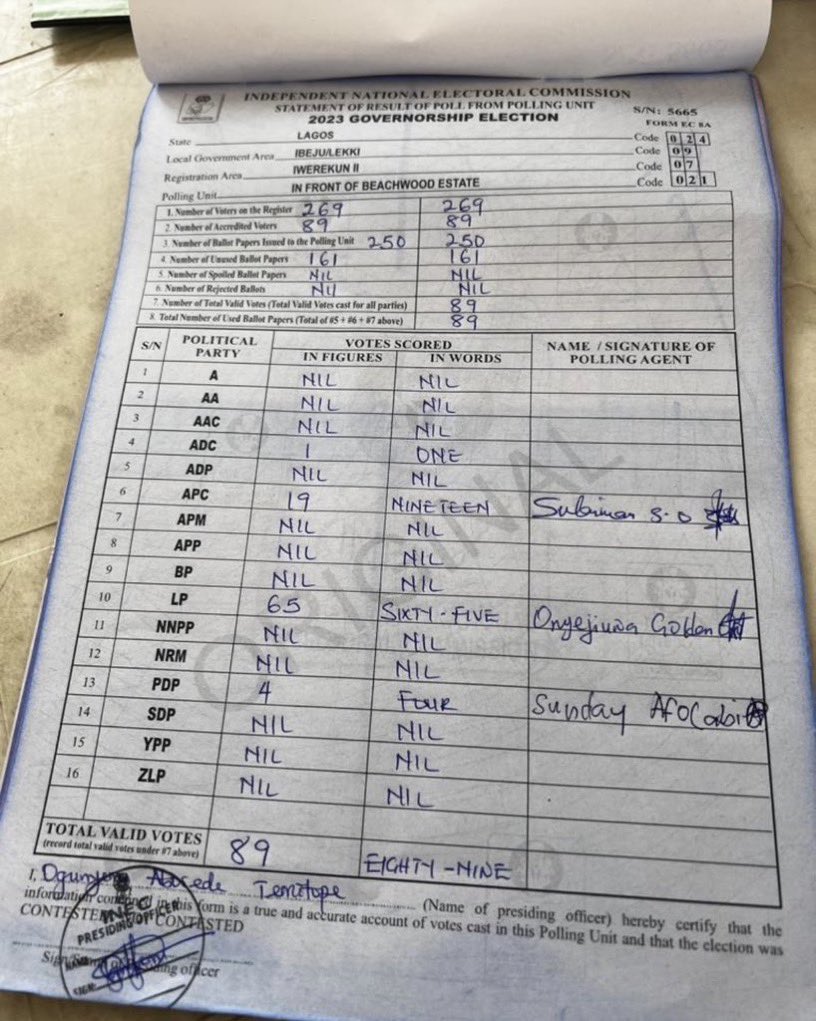 INDEPENDENT NATIONAL ELECTORAL COMMISSION
STATEMENT OF RESULT OF POLL FROM POLLING UNIT
S/N: 5665
2023 GOVERNORSHIP ELECTION
FORM EC 8A
State LAGOS Code 024
Local Government Area IBEJU/LEKKI Code 09
Registration Area IWEREKUN II Code 07
Polling Unit IN FRONT OF BEACHWOOD ESTATE Code 021
1. Number of Voters on the Register 269 269
2. Number of Accredited Voters 89 89
3. Number of Ballot Papers Issued to the Polling Unit 250 250
4. Number of Unused Ballot Papers 161 161
5. Number of Spoiled Ballot Papers NIL NIL
6. Number of Rejected Ballots NIL NIL
7. Number of Total Valid Votes (Total Valid Votes cast for all parties) 89
8. Total Number of Used Ballot Papers (Total of #5 + #6 + #7 above) 89
S/N POLITICAL PARTY VOTES SCORED NAME / SIGNATURE OF POLLING AGENT
IN FIGURES IN WORDS
1 A NIL NIL
2 AA NIL NIL
3 AAC NIL NIL
4 ADC 1 ONE
5 ADP NIL NIL
6 APC 19 NINETEEN S.O
7 APM NIL NIL
8 APP NIL NIL
9 BP NIL NIL
10 LP 65 SIXTY-FIVE Golden
11 NNPP NIL NIL
12 NRM NIL NIL
13 PDP 4 FOUR Sunday
14 SDP NIL NIL
15 YPP NIL NIL
16 ZLP NIL NIL
TOTAL VALID VOTES 89 EIGHTY-NINE
(record total valid votes under #7 above)
I, Temitope (Name of presiding officer) hereby certify that the
information contained in this form is a true and accurate account of votes cast in this Polling Unit and that the election was
CONTESTED / NOT CONTESTED
INEC
PRESIDING OFFICER
SIGN:
ORIGINAL